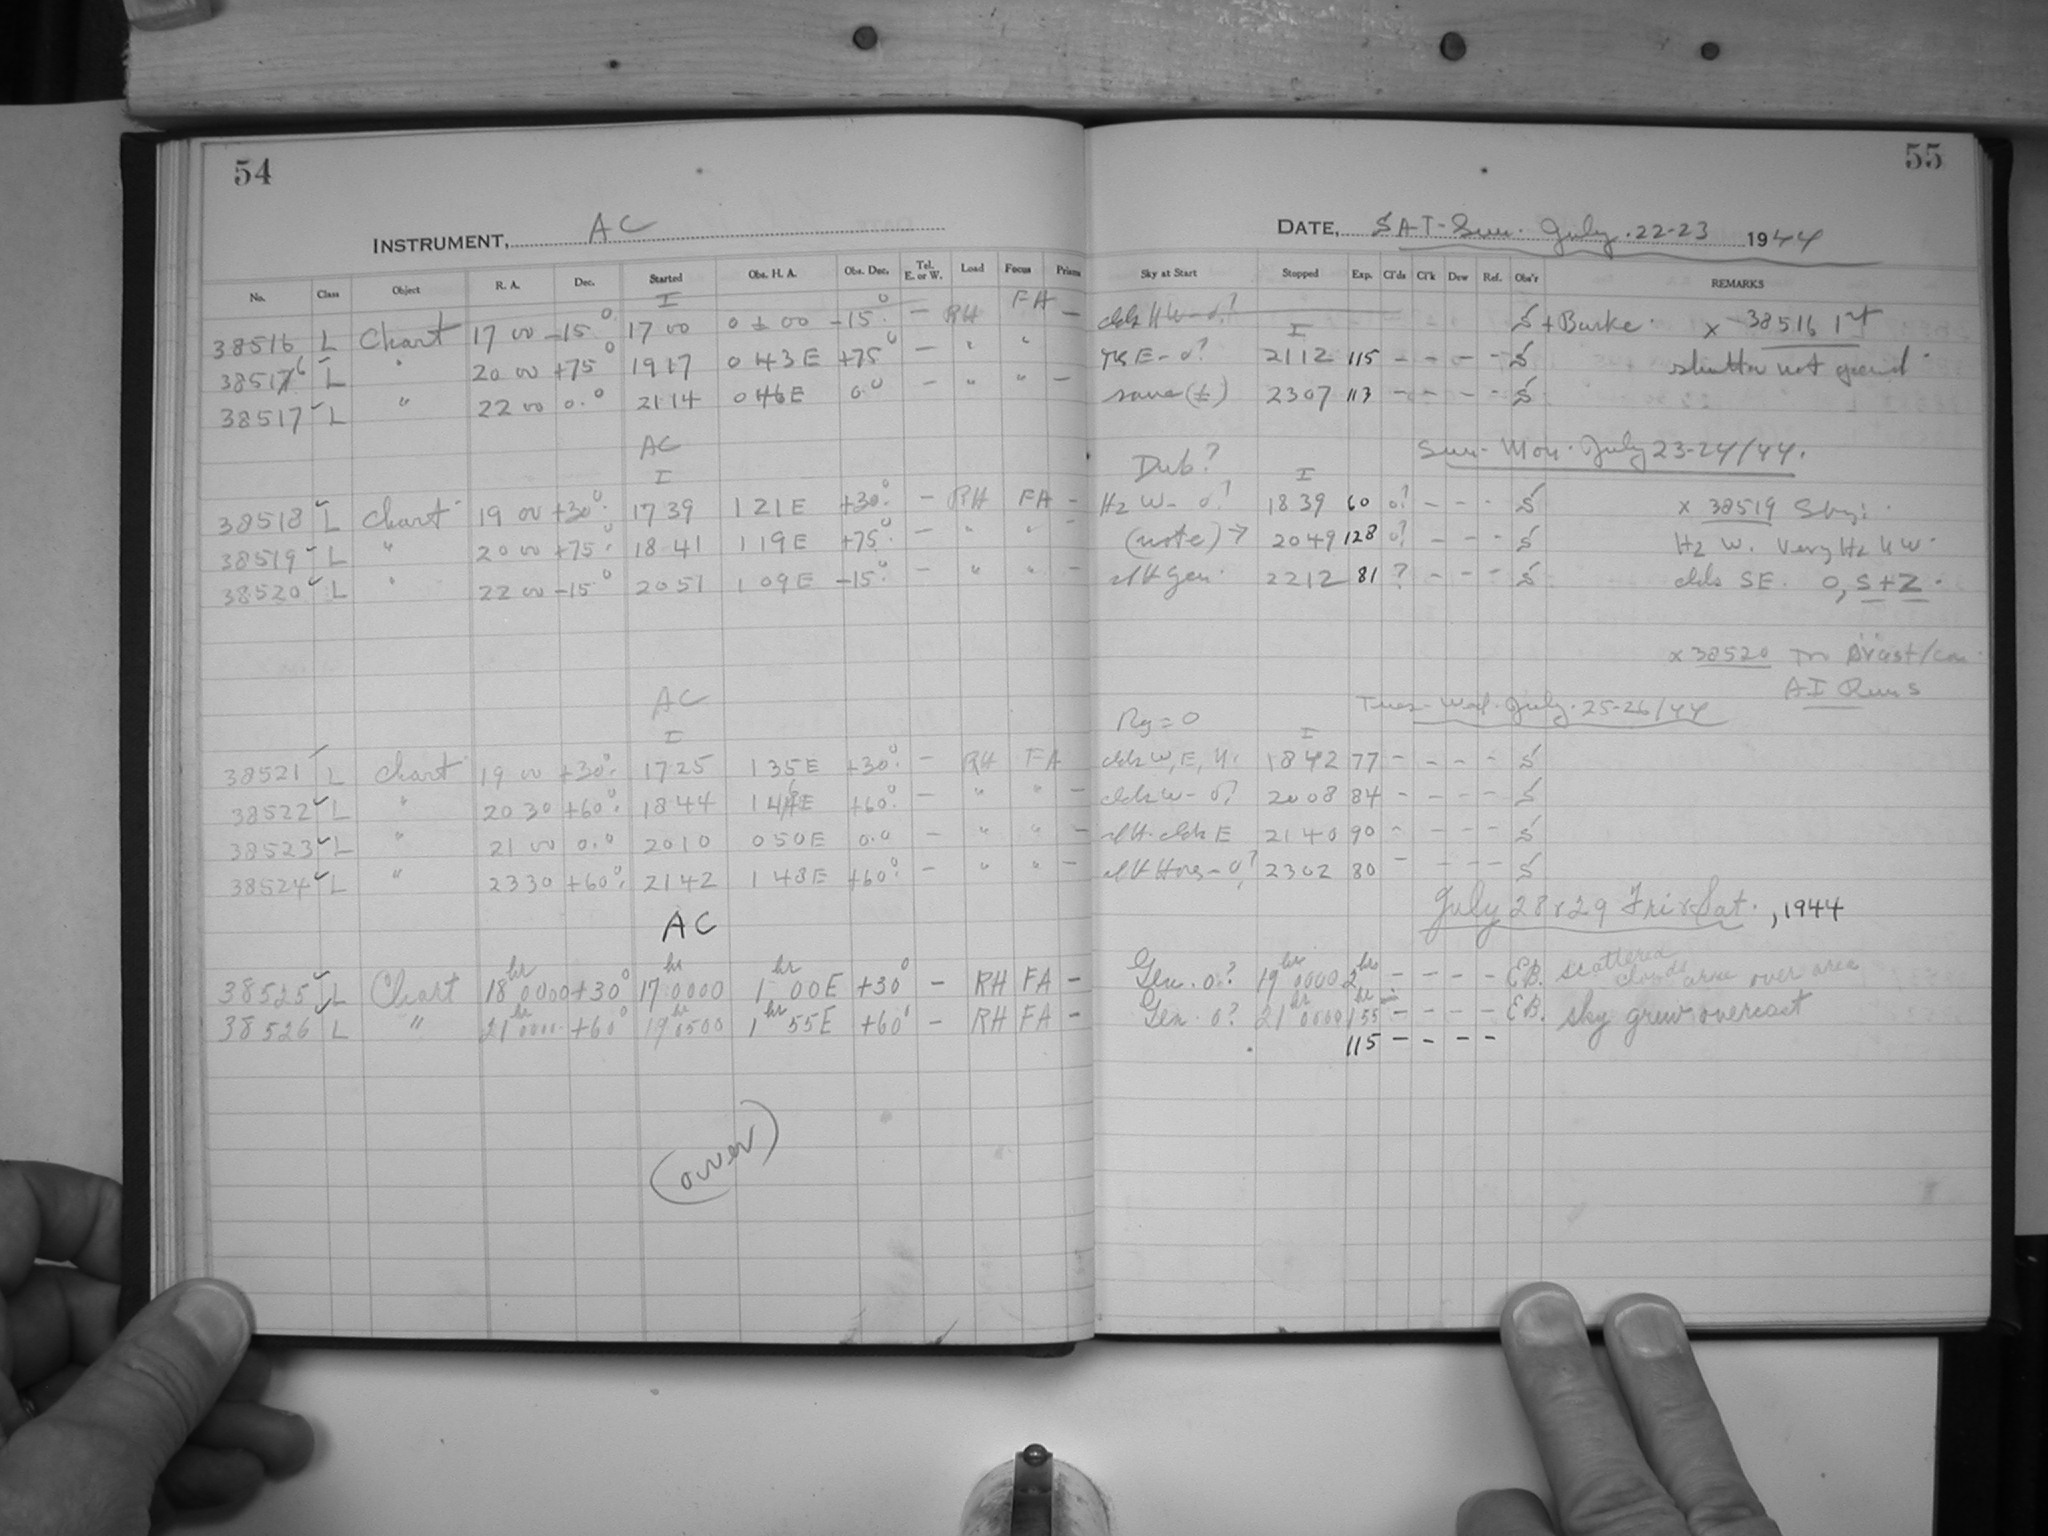 54
55
INSTRUMENT, AC
DATE, SAT-Sun. July. 22-23 1944
No. Class Object R. A. Dec. Started Obs. H. A. Obs. Dec. Tel. E. or W. Load Focus Prisms Sky at Start Stopped Exp. Cl'ds Cl'k Dew Ref. Obs'r REMARKS
I
38516 L Chart 17 00 -15.° 17 00 0 ± 00 -15.° - RH FA - clds HW - 0? S + Burke. x 38516 1st
I
38516 L " 20 00 +75° 1917 0 43 E +75° - " " 0? 2112 115 - - - - S shutter not opened.
38517 L " 22 00 0.° 2114 0 46 E 0.° - " " - same (±) 2307 113 - - - - S
AC Sun-Mon. July 23-24/44.
I Dub? I
38518 L Chart 19 00 +30.° 1739 1 21 E +30.° - RH FA - Hz W - 0? 1839 60 0? - - - S x 38519 Sky:
38519 L " 20 00 +75.° 1841 1 19 E +75.° - " " - (note) → 2049 128 0? - - - S Hz W. Very Hz N W.
38520 L " 22 00 -15° 2051 1 09 E -15.° - " " - Gen. 2212 81 ? - - - S clds SE. 0, S + Z.
x 38520
AC Tues-Wed. July. 25-26/44
I Rg = 0 I
38521 L Chart 19 00 +30.° 1725 1 35 E +30.° - RH FA clds W, E, N. 1842 77 - - - - S
38522 L " 20 30 +60.° 1844 1 46 E +60.° - " " - clds W - 0? 2008 84 - - - - S
38523 L " 21 00 0.° 2010 0 50 E 0.0 - " " - clds E 2140 90 - - - - S
38524 L " 23 30 +60.° 2142 1 48 E +60.° - " " - 0? 2302 80 - - - - S
AC July 28 & 29 Fri & Sat., 1944
38525 L Chart 18hr 0000 +30° 17hr 0000 1hr 00E +30° - RH FA - Gen. 0? 19hrs 0000 2hrs - - - - EB. scattered clouds over area
38526 L " 21hr 0000 +60° 19hr 0500 1hr 55E +60° - RH FA - Gen. 0? 21hr 0000 1hr 55min - - - - EB. sky grew overcast
115 - - - -
(over)